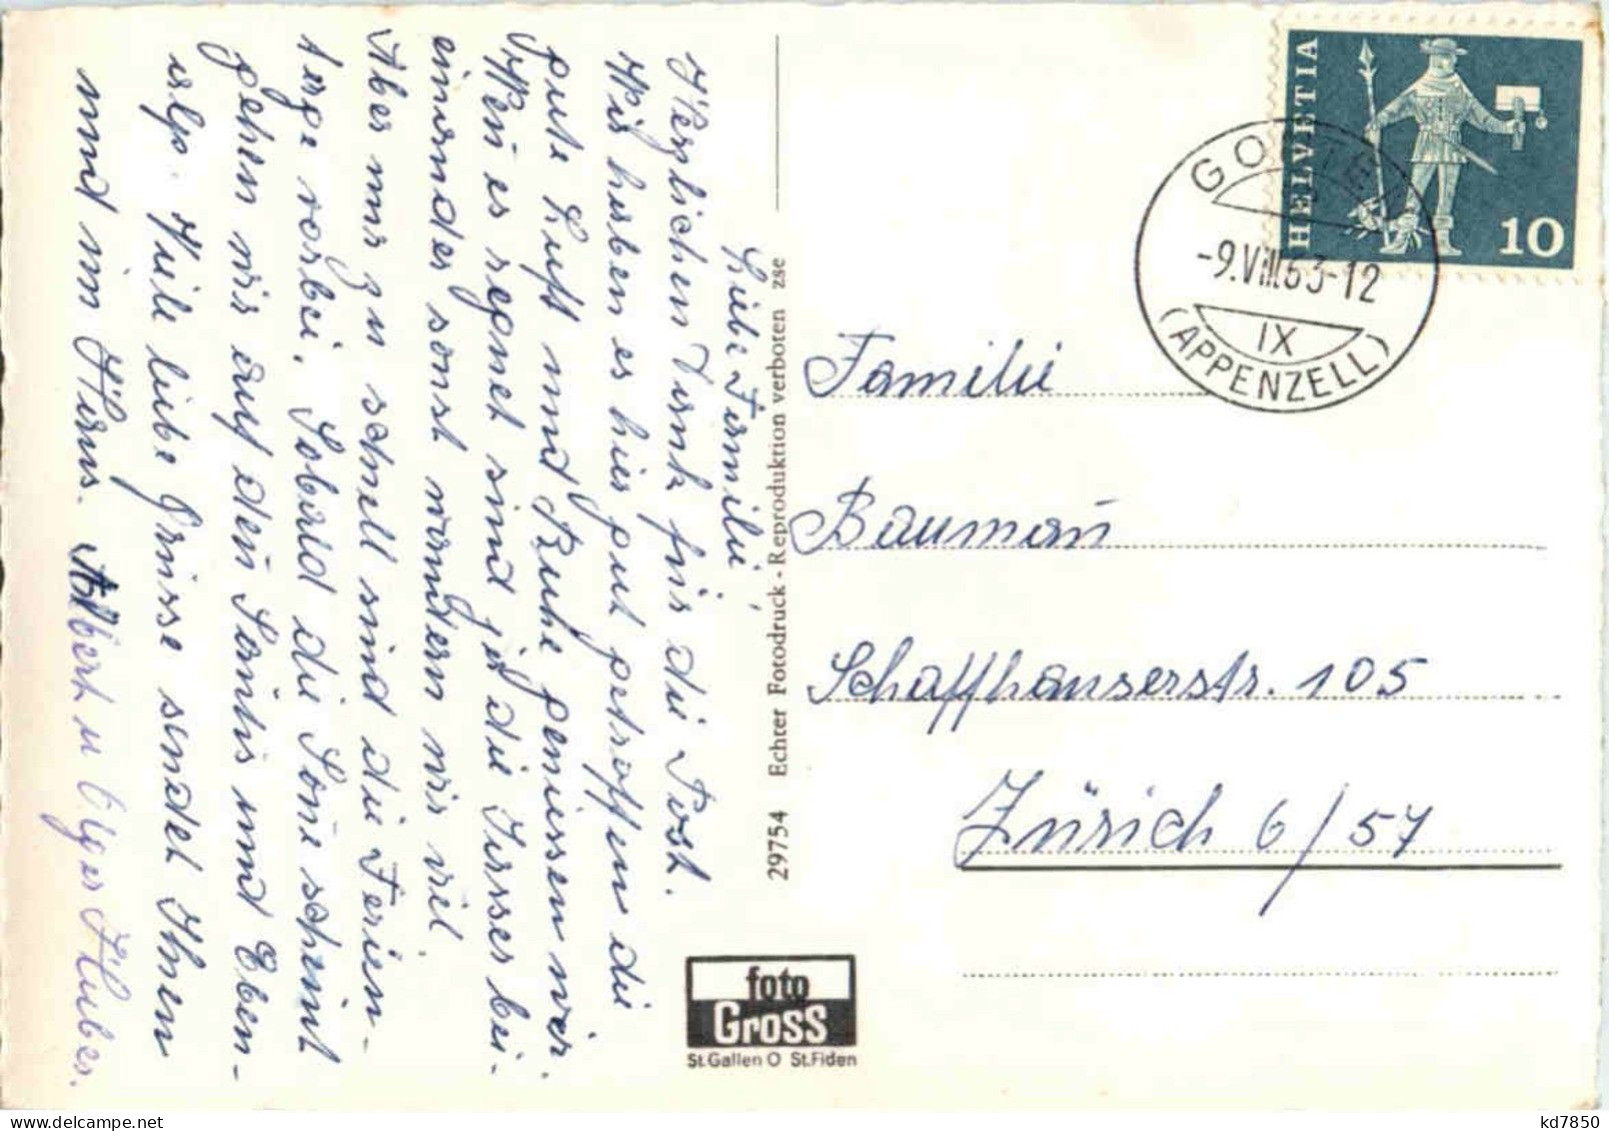 Liebe Familie,
Herzlichen Dank für die Post.
Wir haben es hier gut getroffen die
gute Luft und Ruhe geniessen wir.
Wen es regnet sind ja die Jasser bei-
einander sonst wandern wir vil.
Aber nur zu schnell sind die Ferien-
tage vorbei. Sobald die Sone scheint
gehen wir auf den Säntis und Eben-
alp. Viele liebe Grüsse sendet Ihnen
und im Haus. Albert u Olga Huber.
29754 Echter Fotodruck - Reproduktion verboten zse
foto
Gross
St.Gallen O St.Fiden
HELVETIA
10
GONTEN
-9.VIII.63-12
IX
(APPENZELL)
Familie
Baumañ
Schaffhauserstr. 105
Zürich 6/57
kd7850